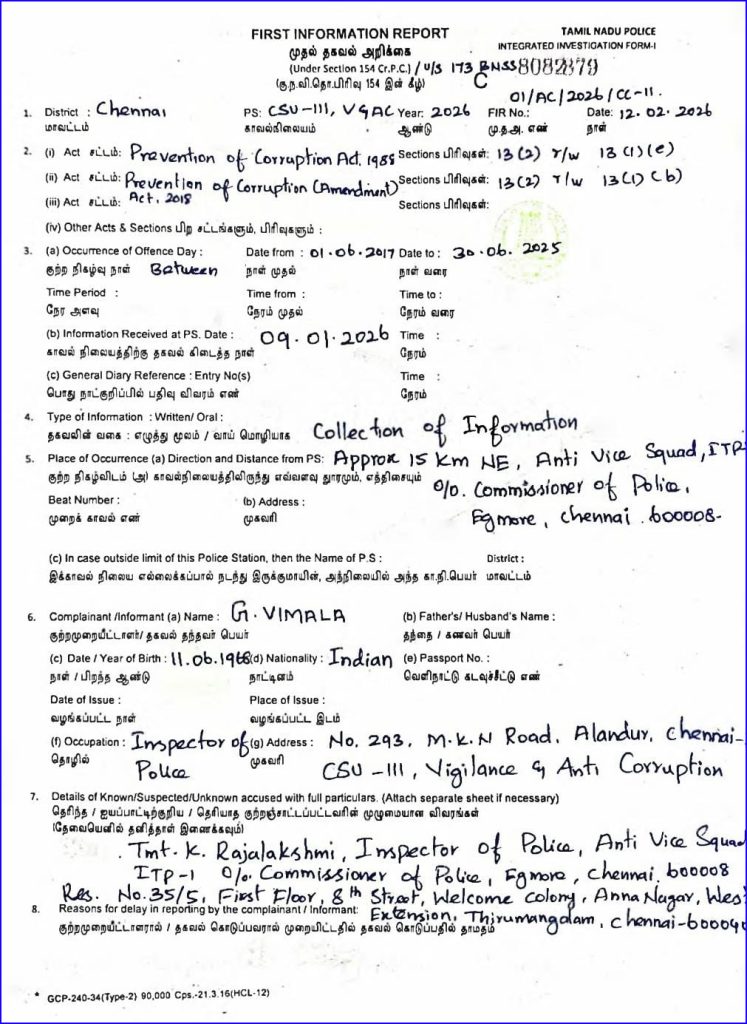 FIRST INFORMATION REPORT
TAMIL NADU POLICE
முதல் தகவல் அறிக்கை
INTEGRATED INVESTIGATION FORM-I
(Under Section 154 Cr.P.C.) / U/S 173 BNSS 8082879
(கு.ந.வி.தொ.பிரிவு 154 இன் கீழ்) C
01/AC/2026/CC-II.
1. District : Chennai PS: CSU-III, V&AC Year: 2026 FIR No.: Date: 12.02.2026
மாவட்டம் காவல்நிலையம் ஆண்டு மு.த.அ. எண் நாள்
2. (i) Act சட்டம்: Prevention of Corruption Act, 1988 Sections பிரிவுகள்: 13(2) r/w 13(1)(e)
(ii) Act சட்டம்: Prevention of Corruption (Amendment) Sections பிரிவுகள்: 13(2) r/w 13(1)(b)
(iii) Act சட்டம்: Act, 2018 Sections பிரிவுகள்:
(iv) Other Acts & Sections பிற சட்டங்களும், பிரிவுகளும் :
3. (a) Occurrence of Offence Day : Date from : 01.06.2017 Date to : 30.06.2025
குற்ற நிகழ்வு நாள் Between நாள் முதல் நாள் வரை
Time Period : Time from : Time to :
நேர அளவு நேரம் முதல் நேரம் வரை
(b) Information Received at PS. Date : 09.01.2026 Time :
காவல் நிலையத்திற்கு தகவல் கிடைத்த நாள் நேரம்
(c) General Diary Reference : Entry No(s) Time :
பொது நாட்குறிப்பில் பதிவு விவரம் எண் நேரம்
4. Type of Information : Written/ Oral : Collection of Information
தகவலின் வகை : எழுத்து மூலம் / வாய் மொழியாக
5. Place of Occurrence (a) Direction and Distance from PS: Approx 15 Km NE, Anti Vice Squad, ITP-
குற்ற நிகழ்விடம் (அ) காவல்நிலையத்திலிருந்து எவ்வளவு தூரமும், எத்திசையும் O/o. Commissioner of Police,
Beat Number : (b) Address :
முறைக் காவல் எண் முகவரி Egmore, Chennai 600008-
(c) In case outside limit of this Police Station, then the Name of P.S : District :
இக்காவல் நிலைய எல்லைக்கப்பால் நடந்து இருக்குமாயின், அந்நிலையில் அந்த கா.நி.பெயர் மாவட்டம்
6. Complainant /Informant (a) Name : G. VIMALA (b) Father's/ Husband's Name :
குற்றமுறையீட்டாளர்/ தகவல் தந்தவர் பெயர் தந்தை / கணவர் பெயர்
(c) Date / Year of Birth : 11.06.1968 (d) Nationality : Indian (e) Passport No. :
நாள் / பிறந்த ஆண்டு நாட்டினம் வெளிநாட்டு கடவுச்சீட்டு எண்
Date of Issue : Place of Issue :
வழங்கப்பட்ட நாள் வழங்கப்பட்ட இடம்
(f) Occupation : Inspector of (g) Address : No. 293, M.K.N Road, Alandur, Chennai-
தொழில் Police முகவரி CSU-III, Vigilance & Anti Corruption
7. Details of Known/Suspected/Unknown accused with full particulars. (Attach separate sheet if necessary)
தெரிந்த / ஐயப்பாட்டிற்குரிய / தெரியாத குற்றஞ்சாட்டப்பட்டவரின் முழுமையான விவரங்கள்
(தேவையெனில் தனித்தாள் இணைக்கவும்)
Tmt. K. Rajalakshmi, Inspector of Police, Anti Vice Squad
ITP-1 O/o. Commissioner of Police, Egmore, Chennai, 600008
Res. No.35/5, First Floor, 8th Street, Welcome Colony, Anna Nagar, Wes
8. Reasons for delay in reporting by the complainant / Informant: Extension, Thirumangalam, Chennai-60004
குற்றமுறையீட்டாளரால் / தகவல் கொடுப்பவரால் முறையிட்டதில் தகவல் கொடுப்பதில் தாமதம்
* GCP-240-34(Type-2) 90,000 Cps.-21.3.16(HCL-12)